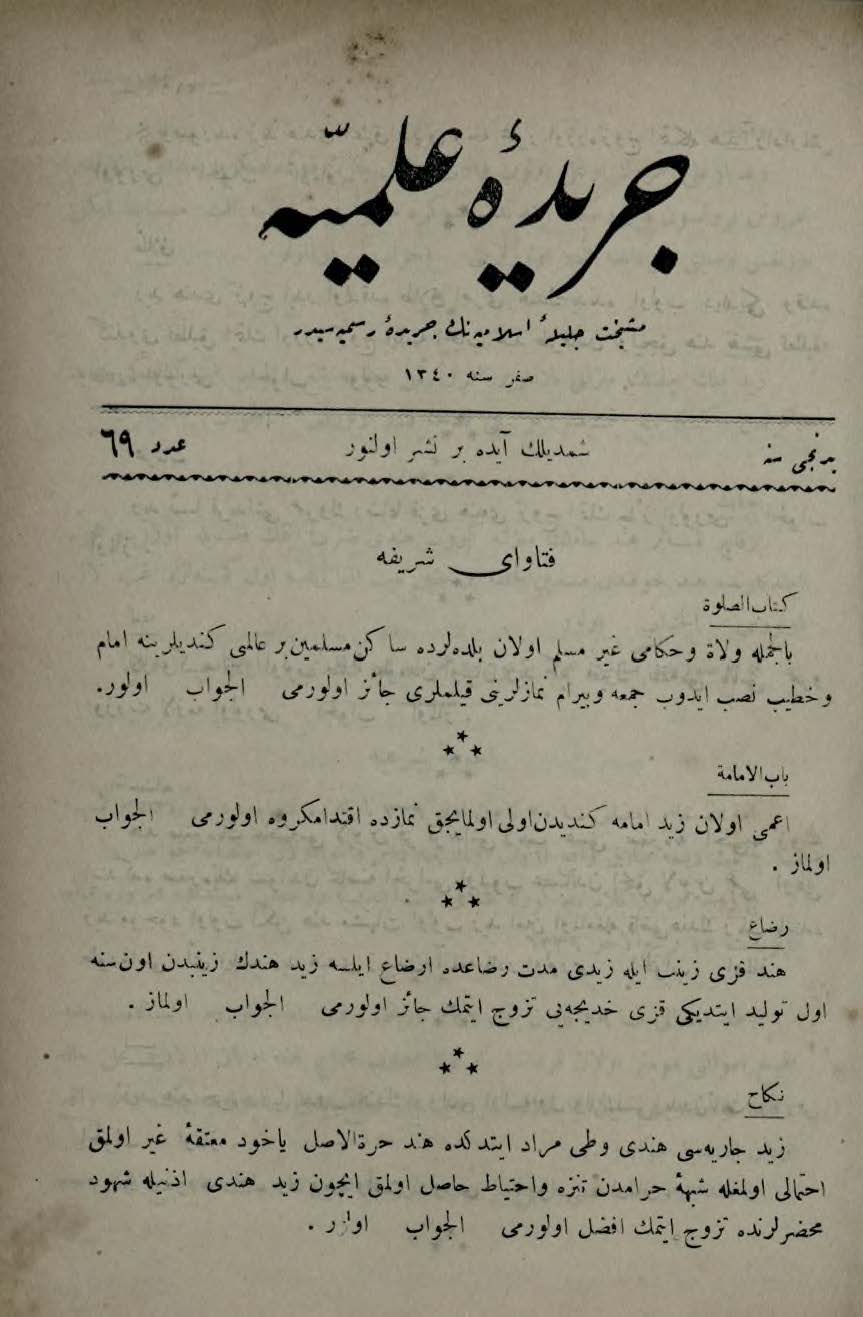 جريدهٔ علميّه
مشيخت جليلهٔ اسلاميه‌نك جريدهٔ رسميه‌سيدر
صفر سنه ١٣٤٠
يدنجى سنه شمديلك آيده بر نشر اولنور عدد ٦٩
فتاواى شريفه
كتاب‌الصلوة
بالجمله ولاة وحكامى غير مسلم اولان بلده‌لرده ساكن مسلمين بر عالمى كنديلرينه امام
وخطيب نصب ايدوب جمعه وبيرام نمازلرينى قيلملرى جائز اولورمى الجواب اولور.
باب‌الامامة
اعمى اولان زيد امامه كنديدن اولى اولمايجق نمازده اقتدا مكروه اولورمى الجواب
اولماز .
رضاع
هند قزى زينب ايله زيدى مدت رضاعده ارضاع ايلسه زيد هندك زينبدن اون سنه
اول توليد ايتديكى قزى خديجه‌يى تزوج ايتمك جائز اولورمى الجواب اولماز .
نكاح
زيد جاريه‌سى هندى وطى مراد ايتدكده هند حرةالاصل ياخود معتقهٔ غير اولمق
احتمالى اولمغله شبههٔ حرامدن تنزه واحتياط حاصل اولمق ايچون زيد هندى اذنيله شهود
محضرلرنده تزوج ايتمك افضل اولورمى الجواب اولور .